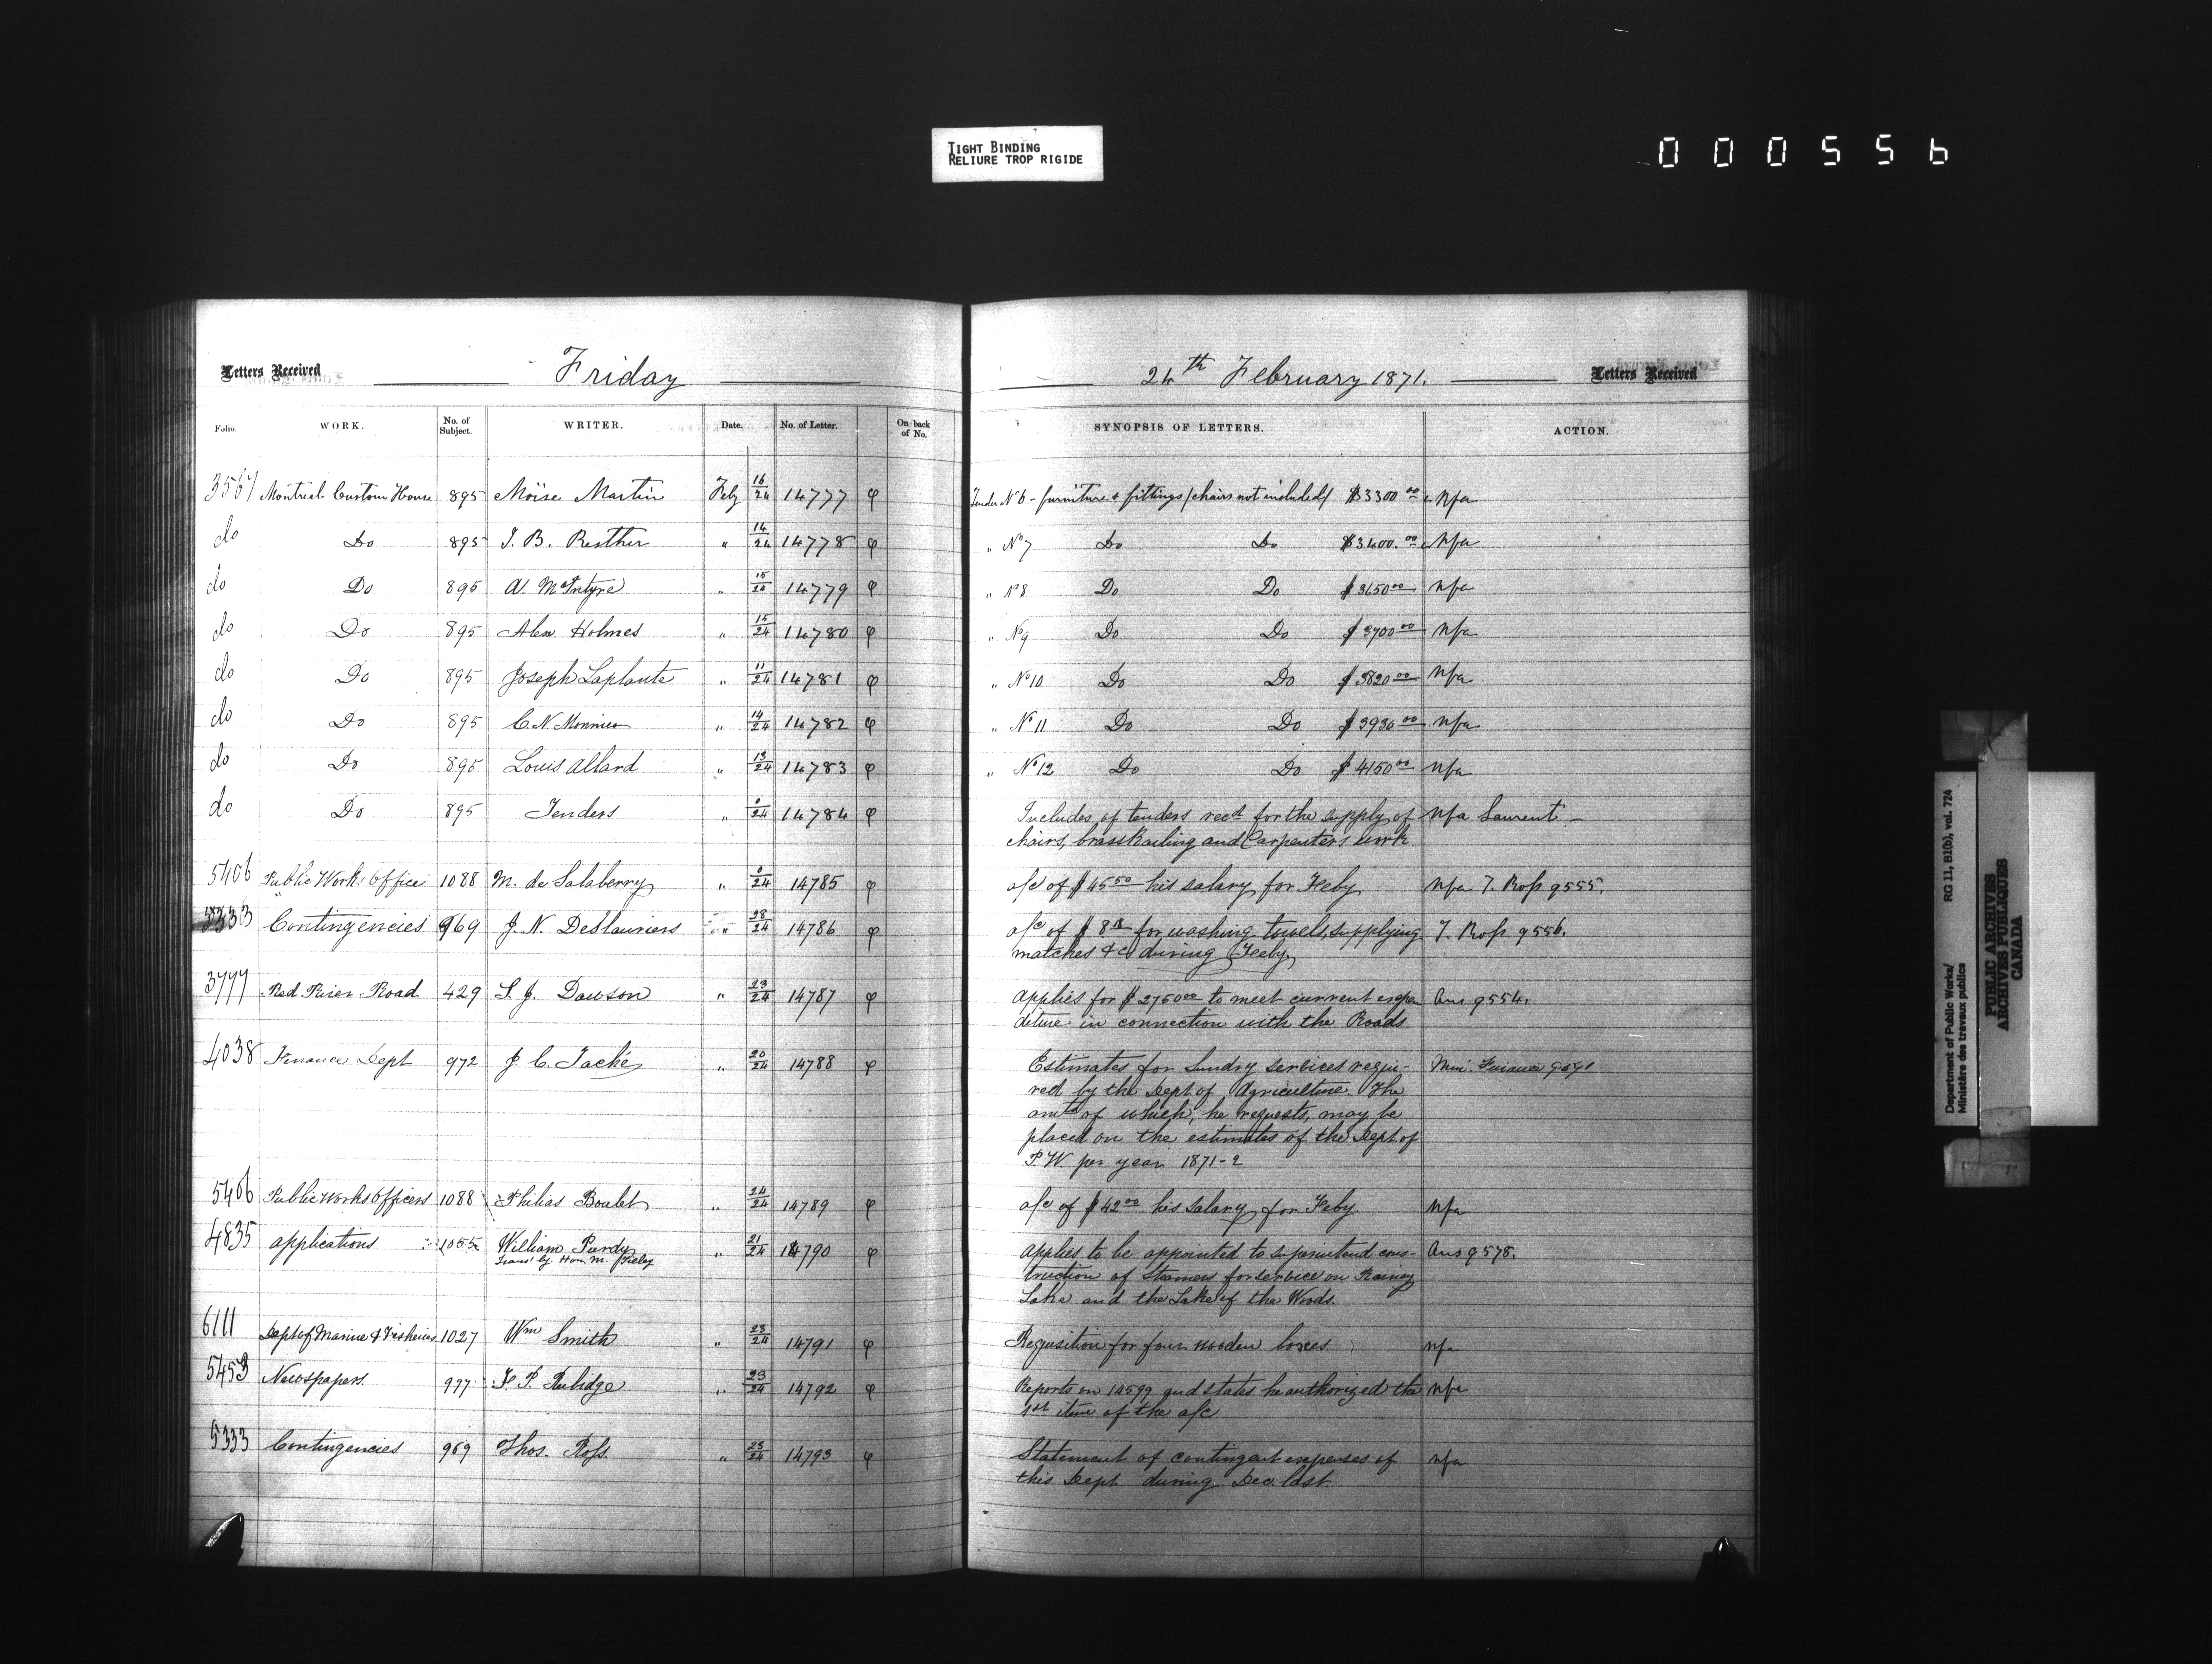 TIGHT BINDING
RELIURE TROP RIGIDE
000556
Letters Received Friday 24th February 1871. Letters Received
Folio. WORK. No. of Subject. WRITER. Date. No. of Letter. On back of No. SYNOPSIS OF LETTERS. ACTION.
3567 Montreal Custom House 895 Moïse Martin Feby 16/24 14777 φ Tender No 6 - furniture & fittings (chairs not included) $3300.00 Nfa
do Do 895 J. B. Resther " 14/24 14778 φ " No 7 Do Do $3400.00 Nfa
do Do 895 A. McIntyre " 15/24 14779 φ " No 8 Do Do $3650.00 Nfa
do Do 895 Alex. Holmes " 15/24 14780 φ " No 9 Do Do $3700.00 Nfa
do Do 895 Joseph Laplante " 11/24 14781 φ " No 10 Do Do $3820.00 Nfa
do Do 895 C. N. " 14/24 14782 φ " No 11 Do Do $3930.00 Nfa
do Do 895 Louis Allard " 13/24 14783 φ " No 12 Do Do $4150.00 Nfa
do Do 895 Tenders " 0/24 14784 φ Includes of tenders recd for the supply of Nfa Laurent -
chairs, brass Railing and Carpenters work
5406 Public Works Office 1088 M. de Salaberry " 0/24 14785 φ a/c of $45.50 his salary for Feby Nfa T. Ross 9555.
5333 Contingencies 969 J. N. Deslauriers " 28/24 14786 φ a/c of $8 for washing towels, supplying T. Ross 9556.
matches &c during Feby
3777 Red River Road 429 S. J. Dawson " 23/24 14787 φ applies for $2750.00 to meet current expen Ans 9554.
diture in connection with the Roads
4038 Finance Dept 972 J. C. Taché " 20/24 14788 φ Estimates for Sundry services requi- Min. Finance
red by the Dept of Agriculture. The
amt of which, he requests, may be
placed on the estimates of the Dept of
P. W. per year 1871-2
5406 Public Works Officers 1088 Philias Boulet " 24/24 14789 φ a/c of $42.00 his salary for Feby. Nfa
4835 applications 1055 William Purdy " 21/24 14790 φ applies to be appointed to superintend cons- Ans 9578.
Trans' by Hon. M.
truction of Steamers for service on Rainey
Lake and the Lake of the Woods.
6111 Dept of Marine & Fisheries 1027 Wm Smith " 23/24 14791 φ Requisition for four wooden boxes. nfa
5453 Newspapers. 997 F. P. Rubidge " 23/24 14792 φ Reports on 14599 and states he authorized the nfa
1st item of the a/c
5333 Contingencies 969 Thos. Ross. " 23/24 14793 φ Statement of contingent expenses of nfa
this Dept during Dec. last
Department of Public Works/ RG 11, B1(b), vol. 724
Ministère des travaux publics
PUBLIC ARCHIVES
ARCHIVES PUBLIQUES
CANADA